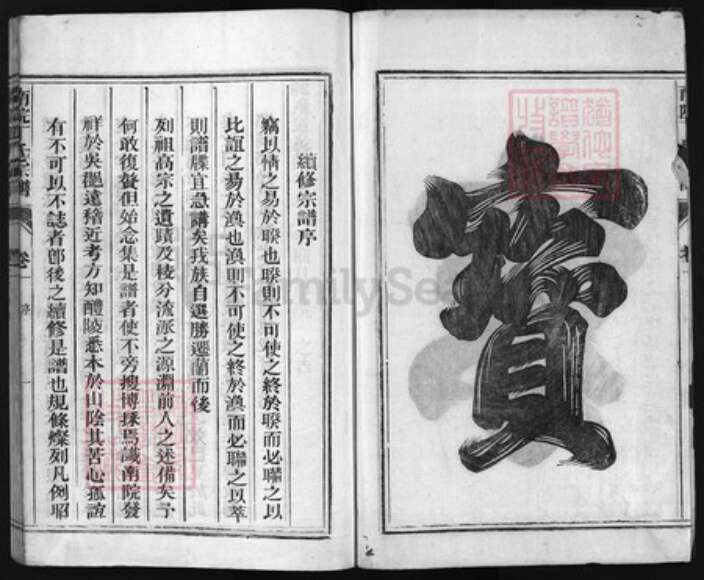 寶
續修宗譜序
竊以情之易於睽也睽則不可使之終於睽而必聯之以
比誼之易於渙也渙則不可使之終於渙而必聯之以萃
則譜牒宜急講矣我族自選勝遷蘭而後
列祖高宗之遺蹟及稜分流派之源淵前人之述備矣予
何敢復贅但始念集是譜者使不旁搜博採焉識南院發
祥於吳邑遠稽近考方知醴陵悉木於山陰其苦心孤誼
有不可以不誌者卽後之續修是譜也規條燦列凡例昭
卷一
序
FamilySearch